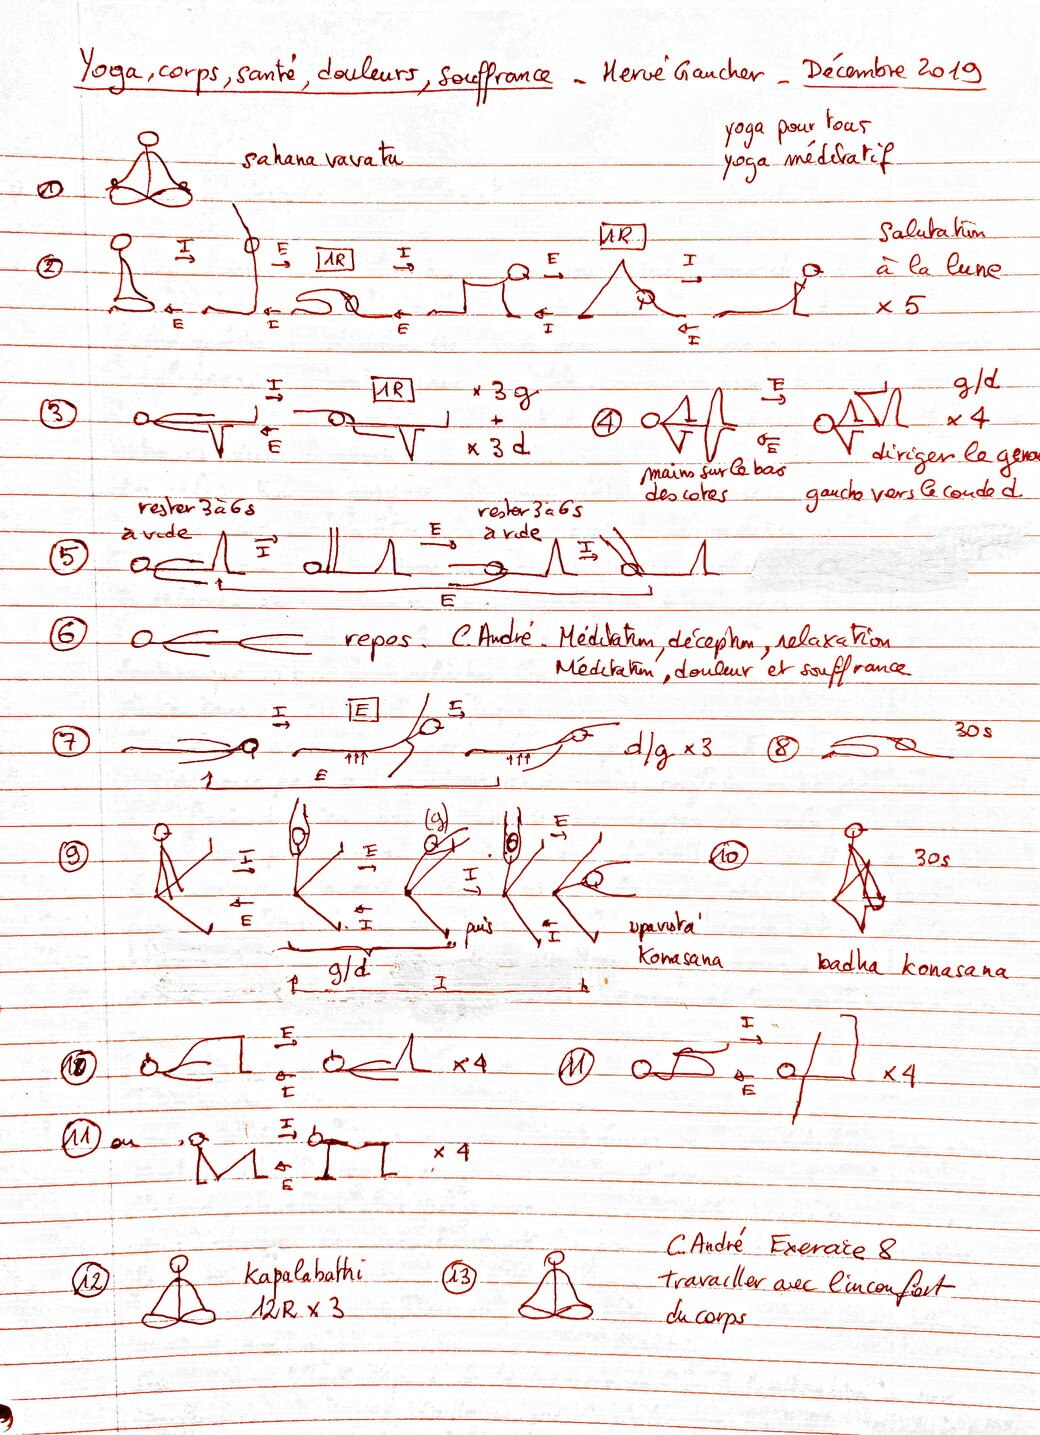 Yoga, corps, santé, douleurs, souffrance - Hervé Gaucher - Décembre 2019
yoga pour tous
yoga méditatif
1 sahana vavatu
2 I E 1R I 1R E I Salutation
à la lune
x 5
E I E I I
3 I 1R x 3 g
+
E x 3 d
4 E g/d
x 4
E
mains sur le bas
des cotes
diriger le genou
gauche vers le coude d
rester 3 à 6 s
à vide
rester 3 à 6 s
à vide
5 I E I
E
6 repos. C. André. Méditation, déception, relaxation
Méditation, douleur et souffrance
7 I E I d/g x 3
E
8 30s
9 I E (g) I E
E I puis I
g/d
I
upavista
Konasana
10 30s
badha konasana
10 E x 4
I
11 I x 4
E
11 ou I x 4
E
12 Kapalabathi
12R x 3
13 C. André Exercice 8
travailler avec l'inconfort
du corps